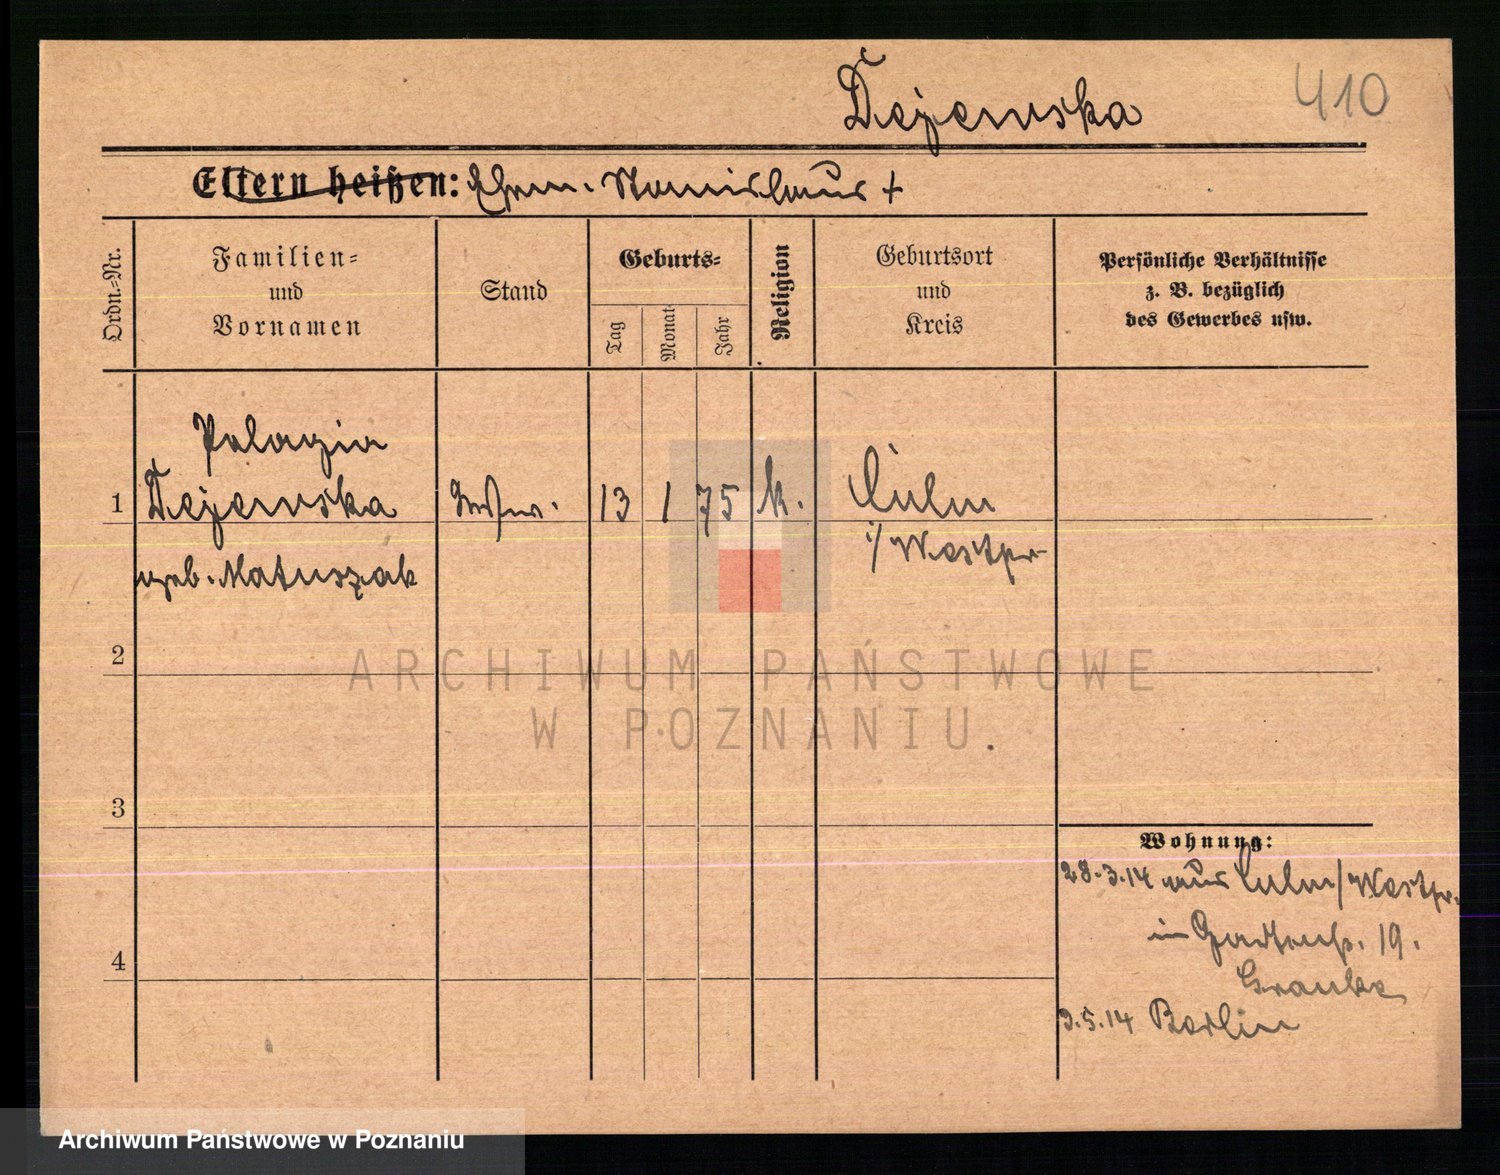 Dezewska
410
Eltern heißen: Ehem. Stanislaus +
Ordn.-Nr.
Familien-
und
Vornamen
Stand
Geburts-
Tag
Monat
Jahr
Religion
Geburtsort
und
Kreis
Persönliche Verhältnisse
z. B. bezüglich
des Gewerbes usw.
Pelagia
1 Dezewska 13 1 75 k. Culm
i/ Westpr
geb. Matuszak
2
ARCHIWUM PAŃSTWOWE
W POZNANIU
3
Wohnung:
28.3.14 aus Culm/Westpr.
4 in Gartenstr. 19.
3.5.14 Berlin
Archiwum Państwowe w Poznaniu